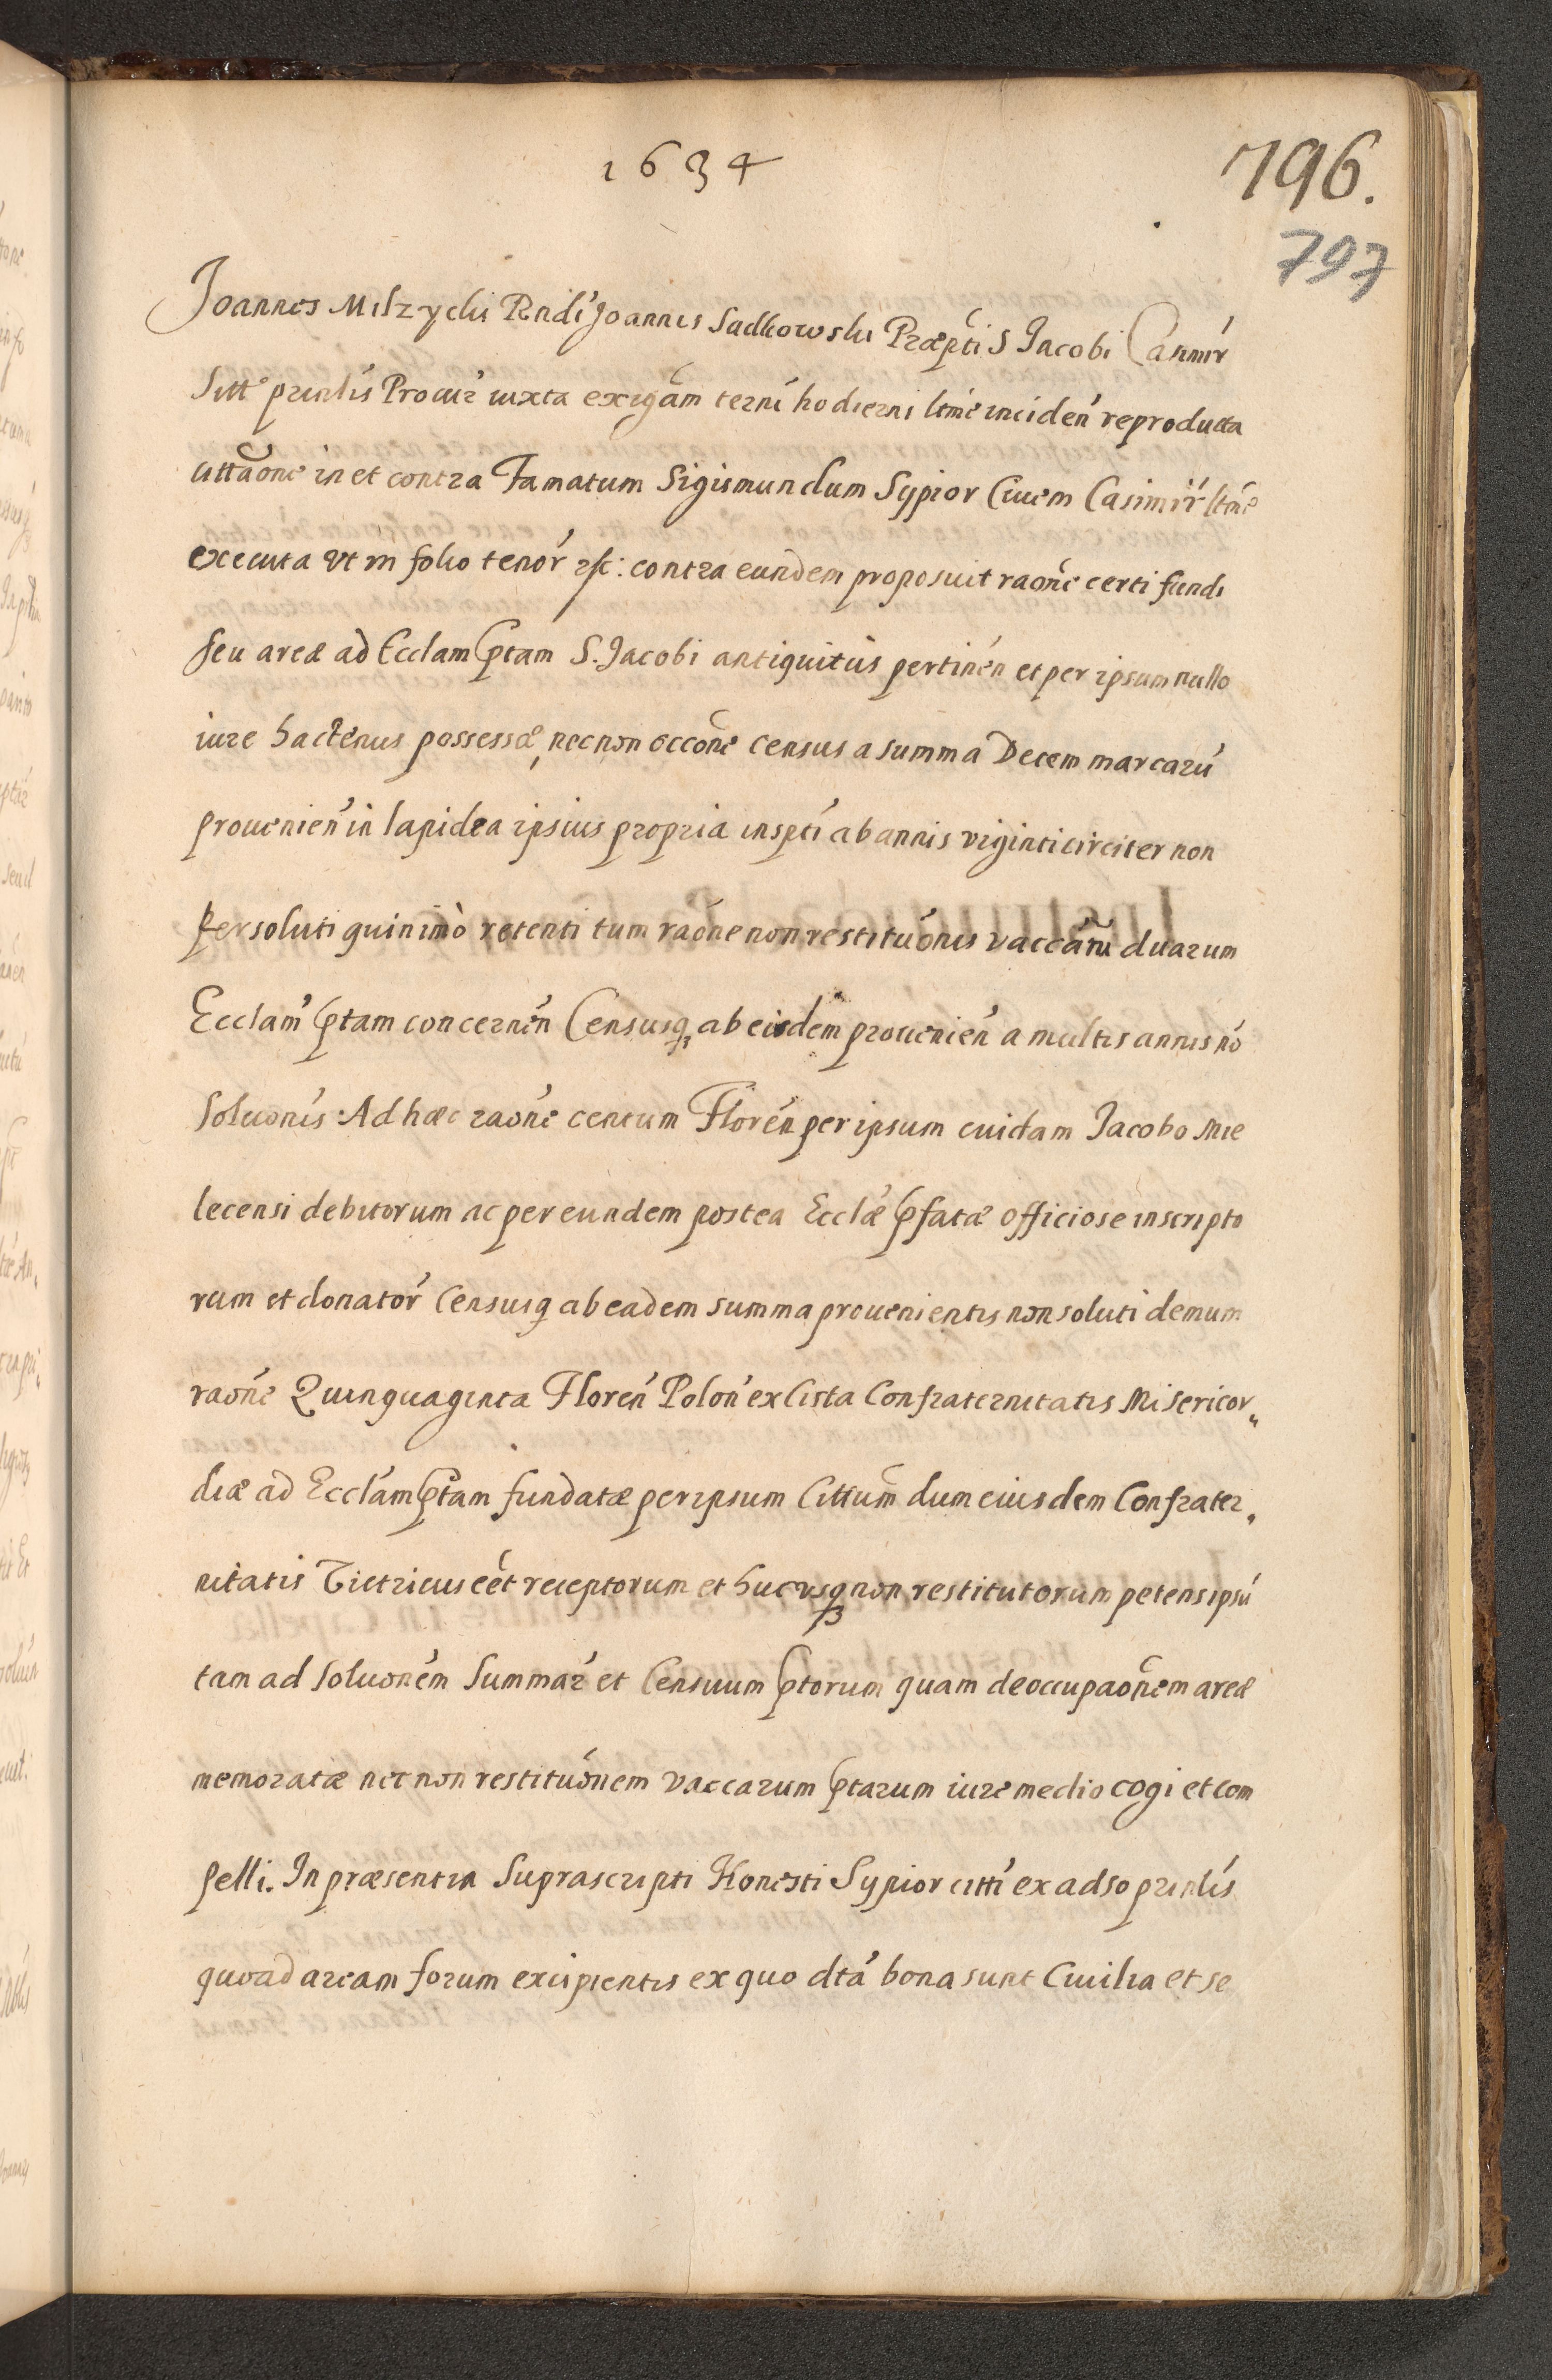 1634
796.
797
Joannes Milzycki Rndi Joannis Sadkowski Præpti S Jacobi Casimir
Sitt prinlis Procur iuxta exigam terni hodierni ltme inciden reproducta
cittaone in et contra Famatum Sigismundum Sypior Ciuem Casimir ltme
executa vt in folio tenor etc: contra eundem proposuit raone certi fundi
seu areæ ad Ecclam ptam S. Jacobi antiquitus pertinen et per ipsum nullo
iure hactenus possessæ, necnon occone census a summa Decem marcaru
prouenien in lapidea ipsius propria inspti ab annis viginti circiter non
persoluti quinimò retenti tum raone non restituonis vaccaru duarum
Ecclam ptam concernen Censusq, ab eisdem prouenien a multis annis no
soluonis Ad hæc raone centum Floren per ipsum cuidam Jacobo Mie
lecensi debitorum ac per eundem postea Ecclæ pfatæ officiose inscripto
rum et donator Censusq ab eadem summa prouenientis non soluti demum
raone Quinquaginta Floren Polon ex Cista Confraternitatis Misericor„
diæ ad Ecclam ptam fundatæ per ipsum Cittum dum eiusdem Confrater„
nitatis Vietricus eet receptorum et hucvsq non restitutorum petens ipsu
tam ad soluonem Summar et Censuum ptorum quam deoccupaonem areæ
memoratæ necnon restituonem vaccarum ptarum iure medio cogi et com
pelli. In præsentia Suprascripti Honesti Sypior citti ex adso prinlis
quoad aream forum excipientis ex quo dta bona sunt Ciuilia et se